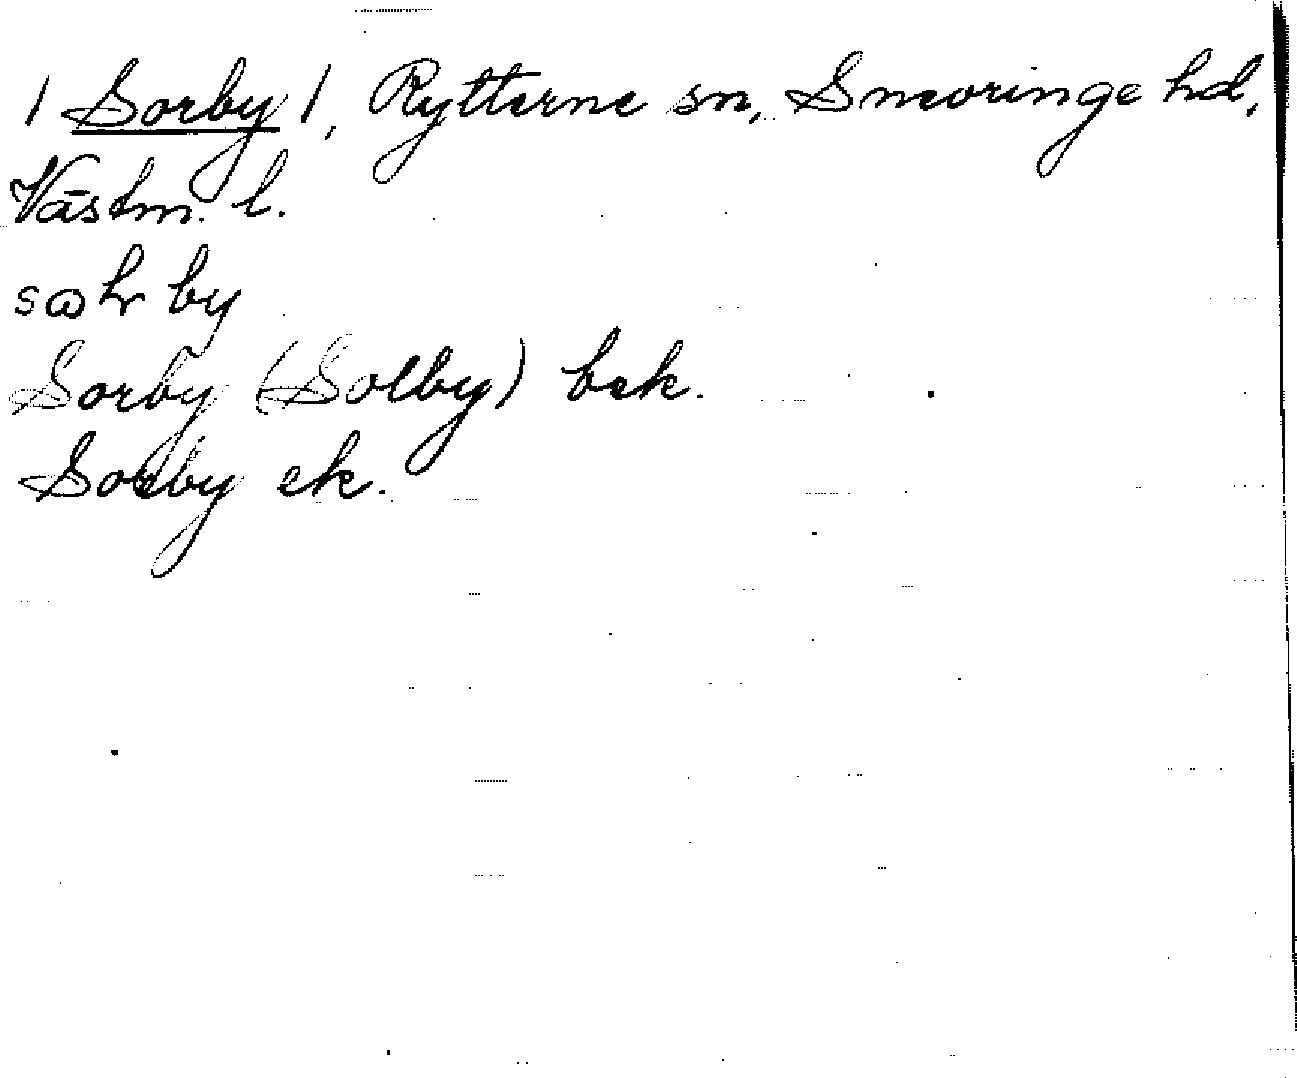 / Sorby /, Rytterne sn, Snevringe hd,
Västm. l.
Sorby (Solby) bek.
Sorby ek.